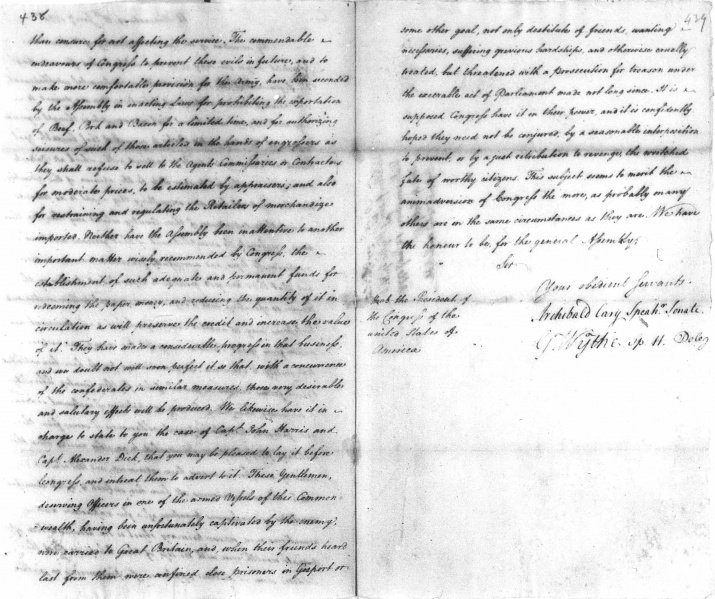 438
than censure for not affecting the service. The commendable
endeavours of Congress to prevent these evils in future, and to
make more comfortable provision for the Army, have been seconded
by the Assembly in enacting Laws for prohibiting the exportation
of Beef, Pork and Bacon for a limited time, and for authorizing
seizures of such of them articles in the hands of engrossers as
they shall refuse to sell to the Agents Commissaries or Contractors
for moderate prices, to be estimated by appraisers; and also
for restraining and regulating the Retailers of merchandize
imported. Neither have the Assembly been inattentive to another
important matter wisely recommended by Congress, the
establishment of such adequate and permanent funds for
redeeming the paper money, and reducing the quantity of it in
circulation as will preserve the credit and increase the value
of it. They have made a considerable progress in that business,
and we doubt not will soon perfect it so that, with a concurrence
of the confederates in similar measures, those very desirable
and salutary effects will be produced. We likewise have it in
charge to state to you the case of Capt. John Harris and
Capt. Alexander Dick, that you may be pleased to lay it before
Congress, and intreat them to advert to it. These Gentlemen,
deserving Officers in one of the armed Vessels of this Common-
-wealth, having been unfortunately captivated by the enemy,
were carried to Great Britain, and, when their friends heard
last from them were confined close prisoners in Gosport or
439
some other goal, not only destitute of friends, wanting
necessaries, suffering grievous hardships, and otherwise cruelly
treated, but threatened with a prosecution for treason under
the execrable act of Parliament made not long since. It is
supposed Congress have it in their power, and it is confidently
hoped they need not be conjured, by a seasonable interposition
to prevent, or by a just retribution to revenge, the wretched
fate of worthy citizens. This subject seems to merit the
animadversion of Congress the more, as probably many
others are in the same circumstances as they are. We have
the honour to be, for the general Assembly,
Sir
Your obedient Servants.
Archibald Cary Speakr. Senate
G. Wythe. Sp. H. Deleg
the President of
the Congress of the
united States of
America